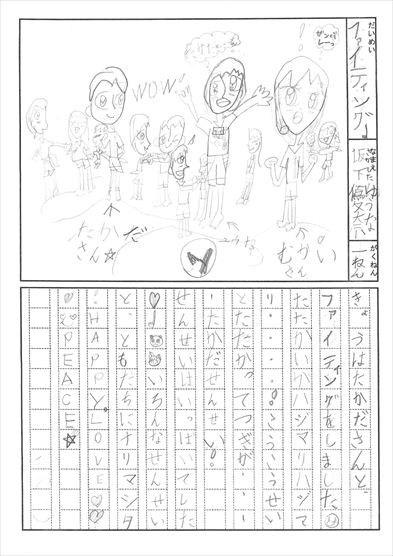 だいめい
ファイティング!
なまえ
坂下
がくねん
一ねん
ガンバレーっ
WOW!
たかださん☆
ゆうな
むかいさん
きょうはたかださんと、
ファイティングをしました
たたかいがハジマリハジマ
リ・・・・!こうこうせい
とたたかってつぎが・・・
・たかだせんせい!
せんせいはいっぱいでした
♥♩いろんなせんせい
と、ともだちにナリマシタ
!HAPPY。LOVE♡♥
♡PEACE★